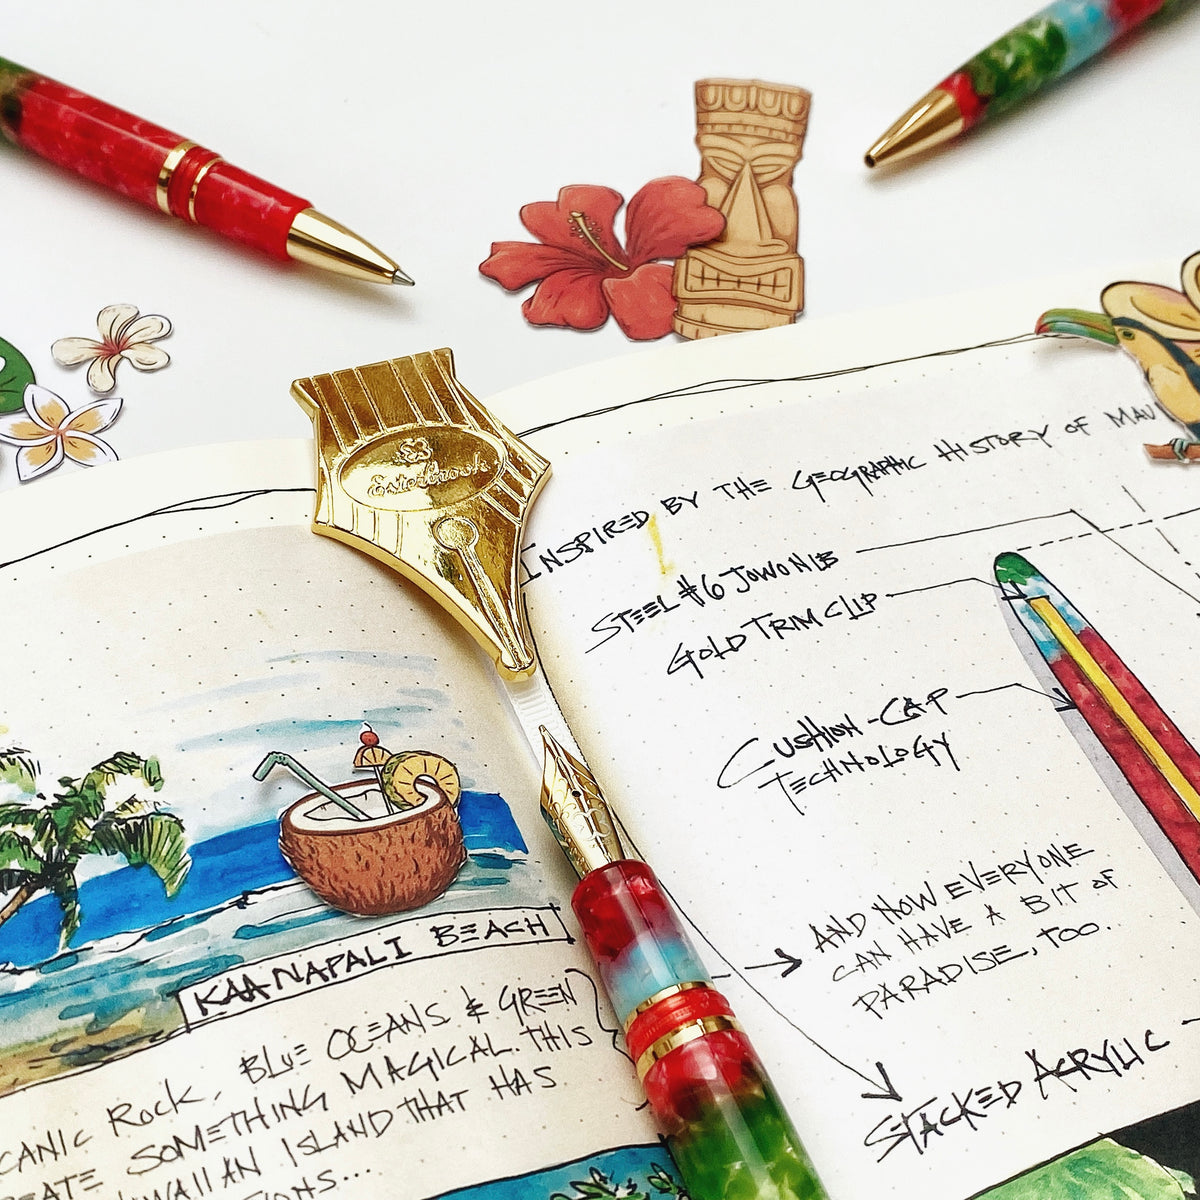 Esterbrook
KAANAPALI BEACH
ROCK, BLUE OCEANS & GREEN
SOMETHING MAGICAL. THIS
ISLAND THAT HAS
INSPIRED BY THE GEOGRAPHIC HISTORY OF MAU
STEEL #6 JOWO NIB
GOLD TRIM CLIP
CUSHION-CAP
TECHNOLOGY
AND NOW EVERYONE
CAN HAVE A BIT OF
PARADISE, TOO..
STACKED ACRYLIC